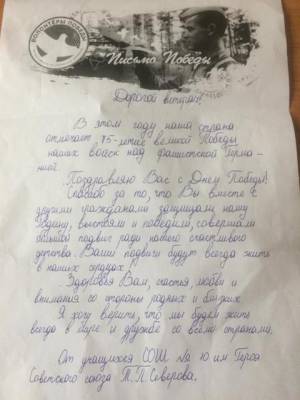 ВОЛОНТЁРЫ ПОБЕДЫ
Письмо Победы
Дорогой ветеран!
В этом году наша страна
отмечает 75-летие великой Победы
наших войск над фашистской Герма-
нией.
Поздравляю Вас с Днем Победы!
Спасибо за то, что Вы вместе с
другими гражданами защищали нашу
Родину, выстояли и победили, совершали
большой подвиг ради нашего счастливого
детства. Ваши подвиги будут всегда жить
в наших сердцах.
Здоровья Вам, счастья, любви и
внимания со стороны родных и близких.
Я хочу верить, что мы будем жить
всегда в мире и дружбе со всеми странами.
От учащихся СОШ № 10 им Героя
Советского союза П. Северова.